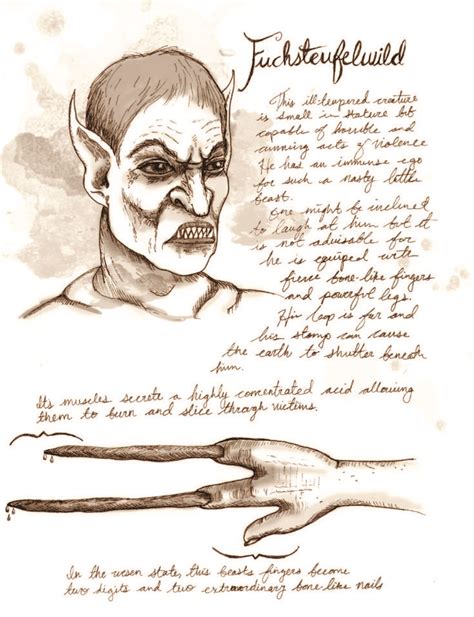 Fuchsteufelwild
This ill-tempered creature
is small in stature but
capable of horrible and
cunning acts of violence
He has an immense ego
for such a nasty little
beast.
One might be inclined
to laugh at him but it
is not advisable for
he is equiped with
fierce bone-like fingers
and powerful legs.
His leap is far and
his stomp can cause
the earth to shutter beneath
him.
Its muscles secrete a highly concentrated acid allowing
them to burn and slice through victims.
In the wesen state, this beasts fingers become
two digits and two extraordinary bone-like nails